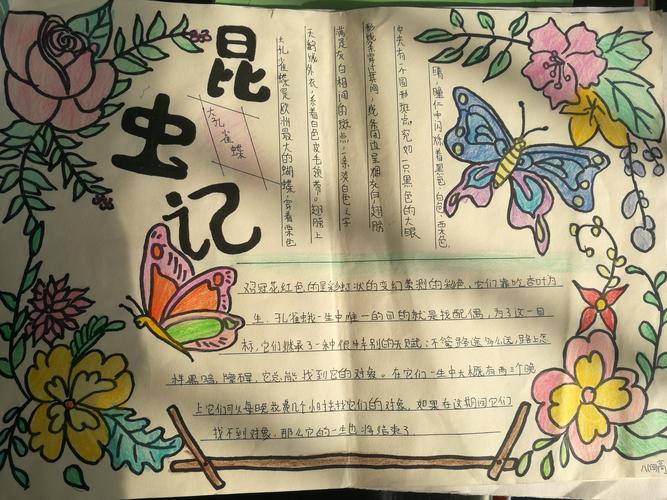 昆虫记
大孔雀蝶
大孔雀蝶是欧洲最大的蝴蝶,穿着栗色
天鹅绒外衣,系着白色皮毛领带。翅膀上
满是灰白相间的斑点,一条淡白色之字
形线条穿过其间,线条周边呈烟灰白,翅膀
中央有一个圆形斑点,宛如一只黑色的大眼
睛,瞳仁中闪烁着黑色,白色,栗色,
鸡冠花红色的呈彩虹状的变幻莫测的色彩,它们靠吃杏叶为
生.孔雀蛾一生中唯一的目的就是找配偶,为了这一目
标,它们继承了一种很特别的天赋:不管路途多么远,路上怎
样黑暗,障碍,它总能找到它的对象。在它们一生中大概有两三个晚
上它们可以每晚花费几个小时去找它们的对象,如果在这期间它们
找不到对象,那么它的一生也将结束了